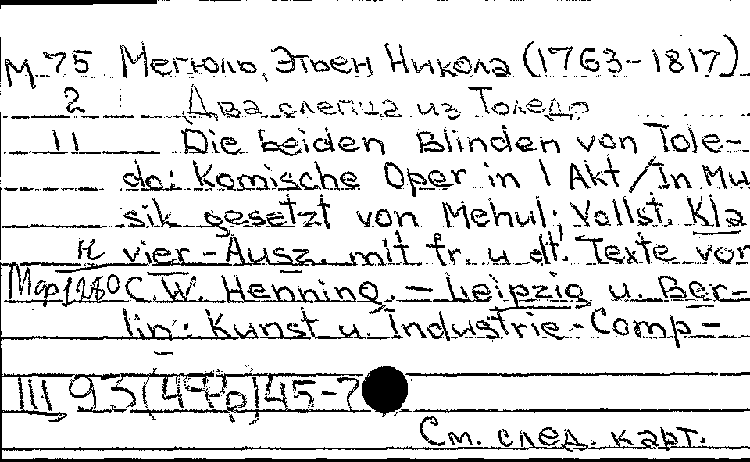 М-75 Мегюль, Этьен Никола (1763-1817)
2 Два слепца из Толедо
11 Die beiden Blinden von Tole-
do: Komische Oper in 1 Akt / In Mu
sik gesetzt von Mehul; Vollst. Kla
vier-Ausz. mit fr. u dt. Texte von
C.W. Henning. – Leipzig u. Ber-
lin: Kunst u. Industrie-Comp-
III 93(4Фр)45-7
См. след. карт.